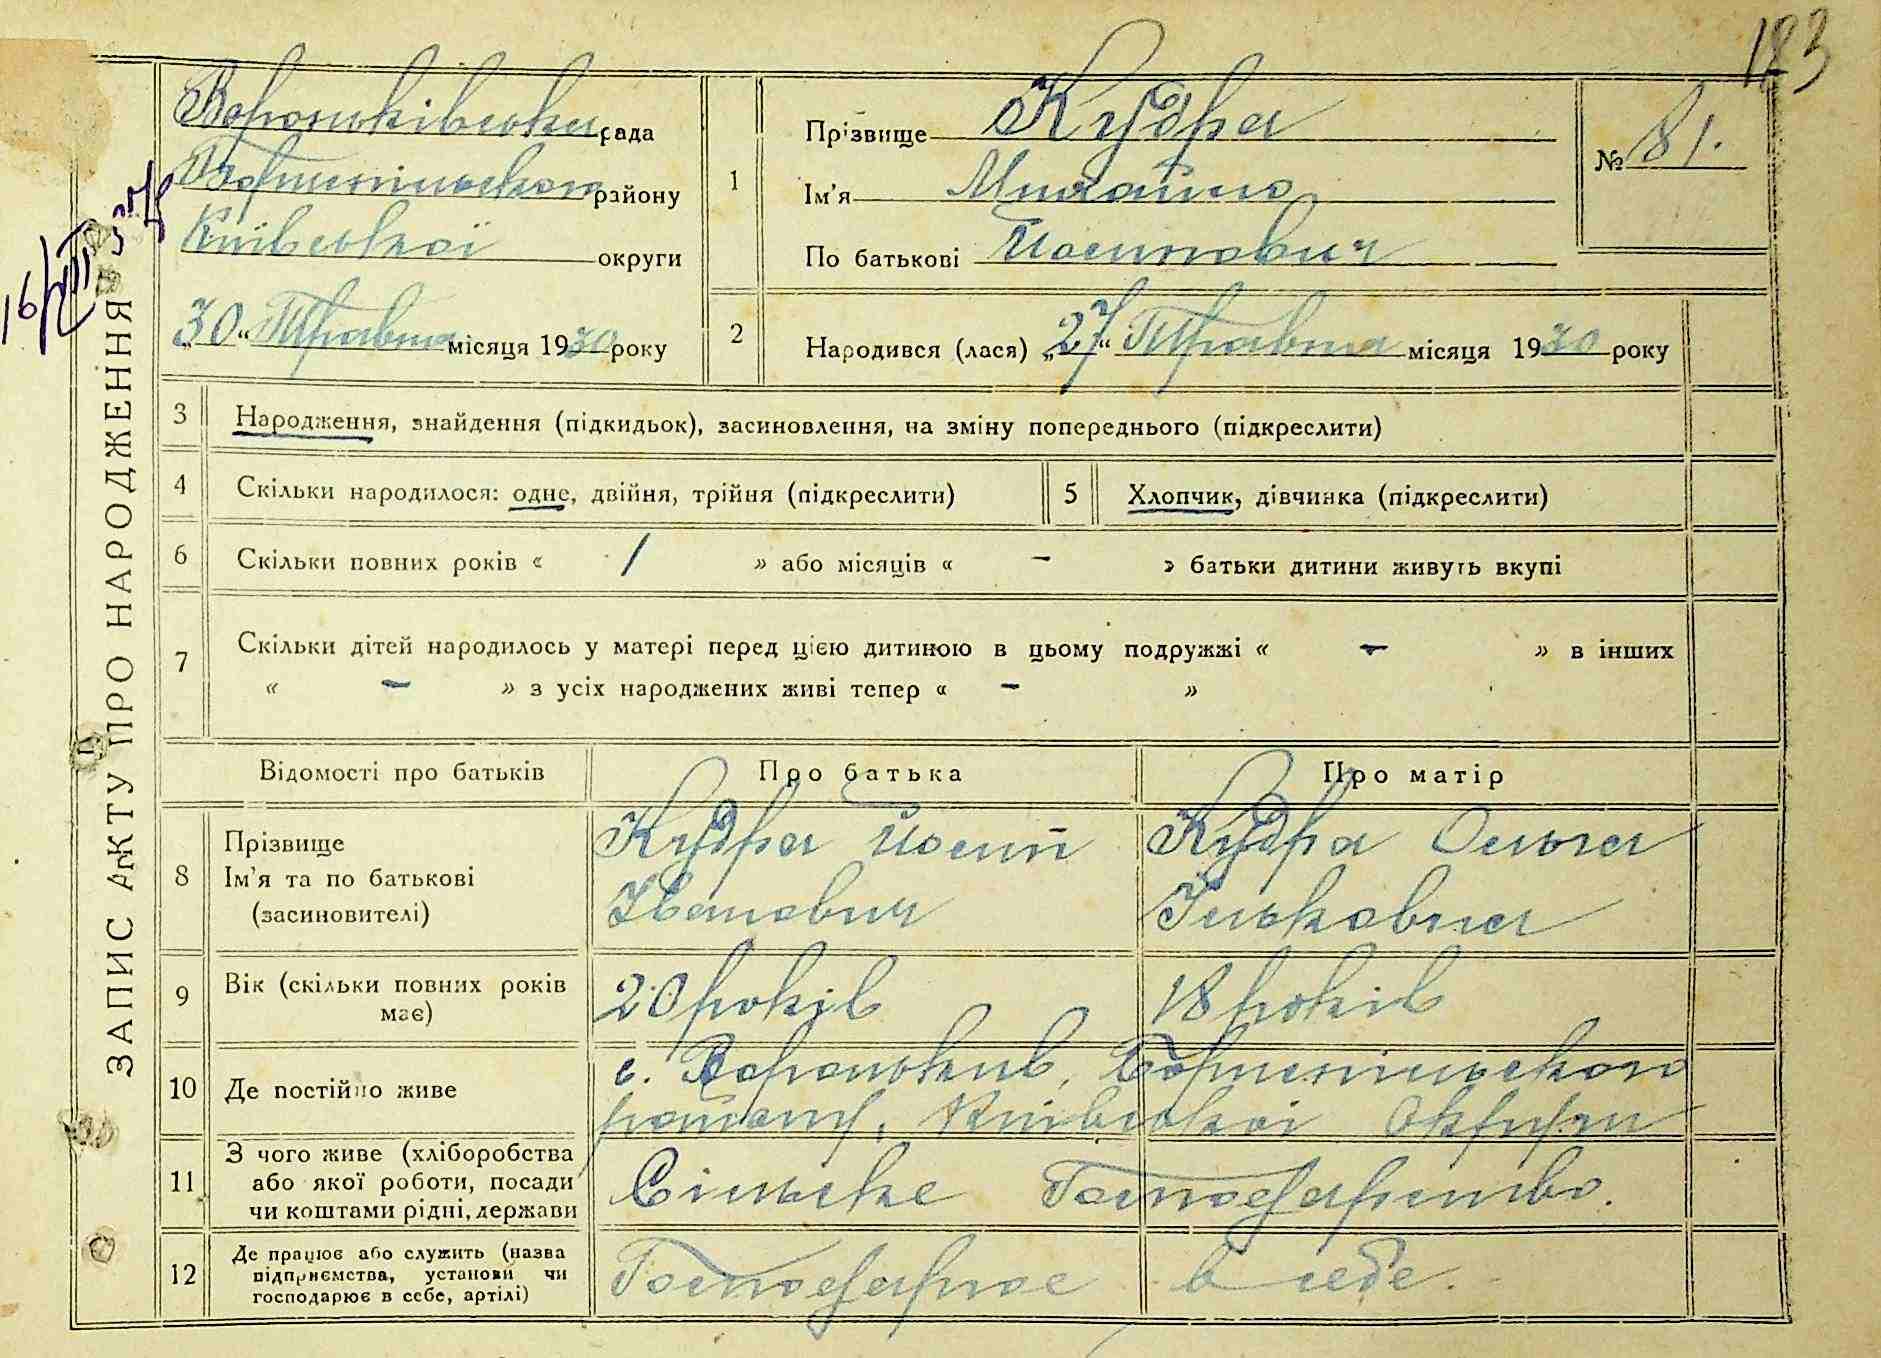 183
Вороньківська рада
Бориспільського району
Київської округи
„30“ Травня місяця 1930 року
16/VIII
ЗАПИС АКТУ ПРО НАРОДЖЕННЯ
1
Прізвище Кудра
Ім'я Михайло
По батькові Йосипович
№ 81.
2
Народився (лася) „27“ Травня місяця 1930 року
3 Народження, знайдення (підкидьок), засиновлення, на зміну попереднього (підкреслити)
4 Скільки народилося: одне, двійня, трійня (підкреслити)
5 Хлопчик, дівчинка (підкреслити)
6 Скільки повних років « 1 » або місяців « – » батьки дитини живуть вкупі
7 Скільки дітей народилось у матері перед цією дитиною в цьому подружжі « – » в інших
« – » з усіх народжених живі тепер « – »
Відомості про батьків Про батька Про матір
8
Прізвище
Ім'я та по батькові
(засиновителі)
Кудра Йосип
Іванович
Кудра Ольга
Ільковна
9
Вік (скільки повних років
має)
20 років
18 років
10 Де постійно живе
с. Вороньків, Бориспільського
району, Київської Округи
11
З чого живе (хліборобства
або якої роботи, посади
чи коштами рідні, держави
Сільське Господарство.
12
Де працює або служить (назва
підприємства, установи чи
господарює в себе, артілі)
Господарює в себе.